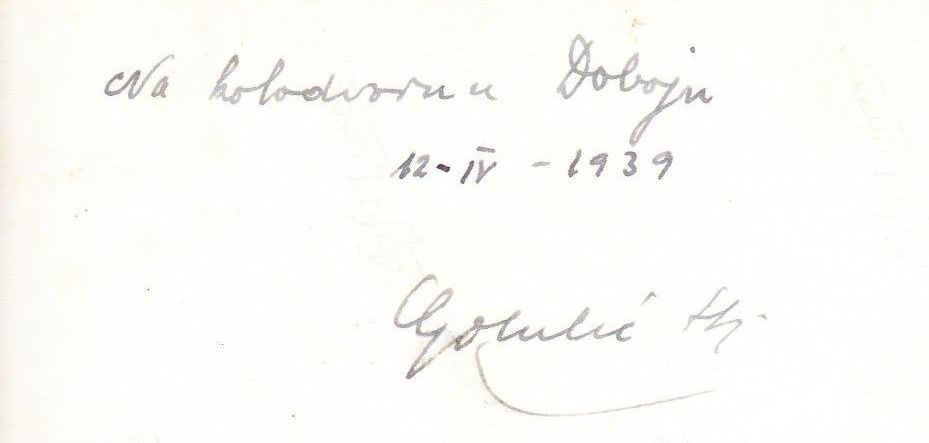 Na kolodvoru u Doboju
12-IV-1939
Golubić